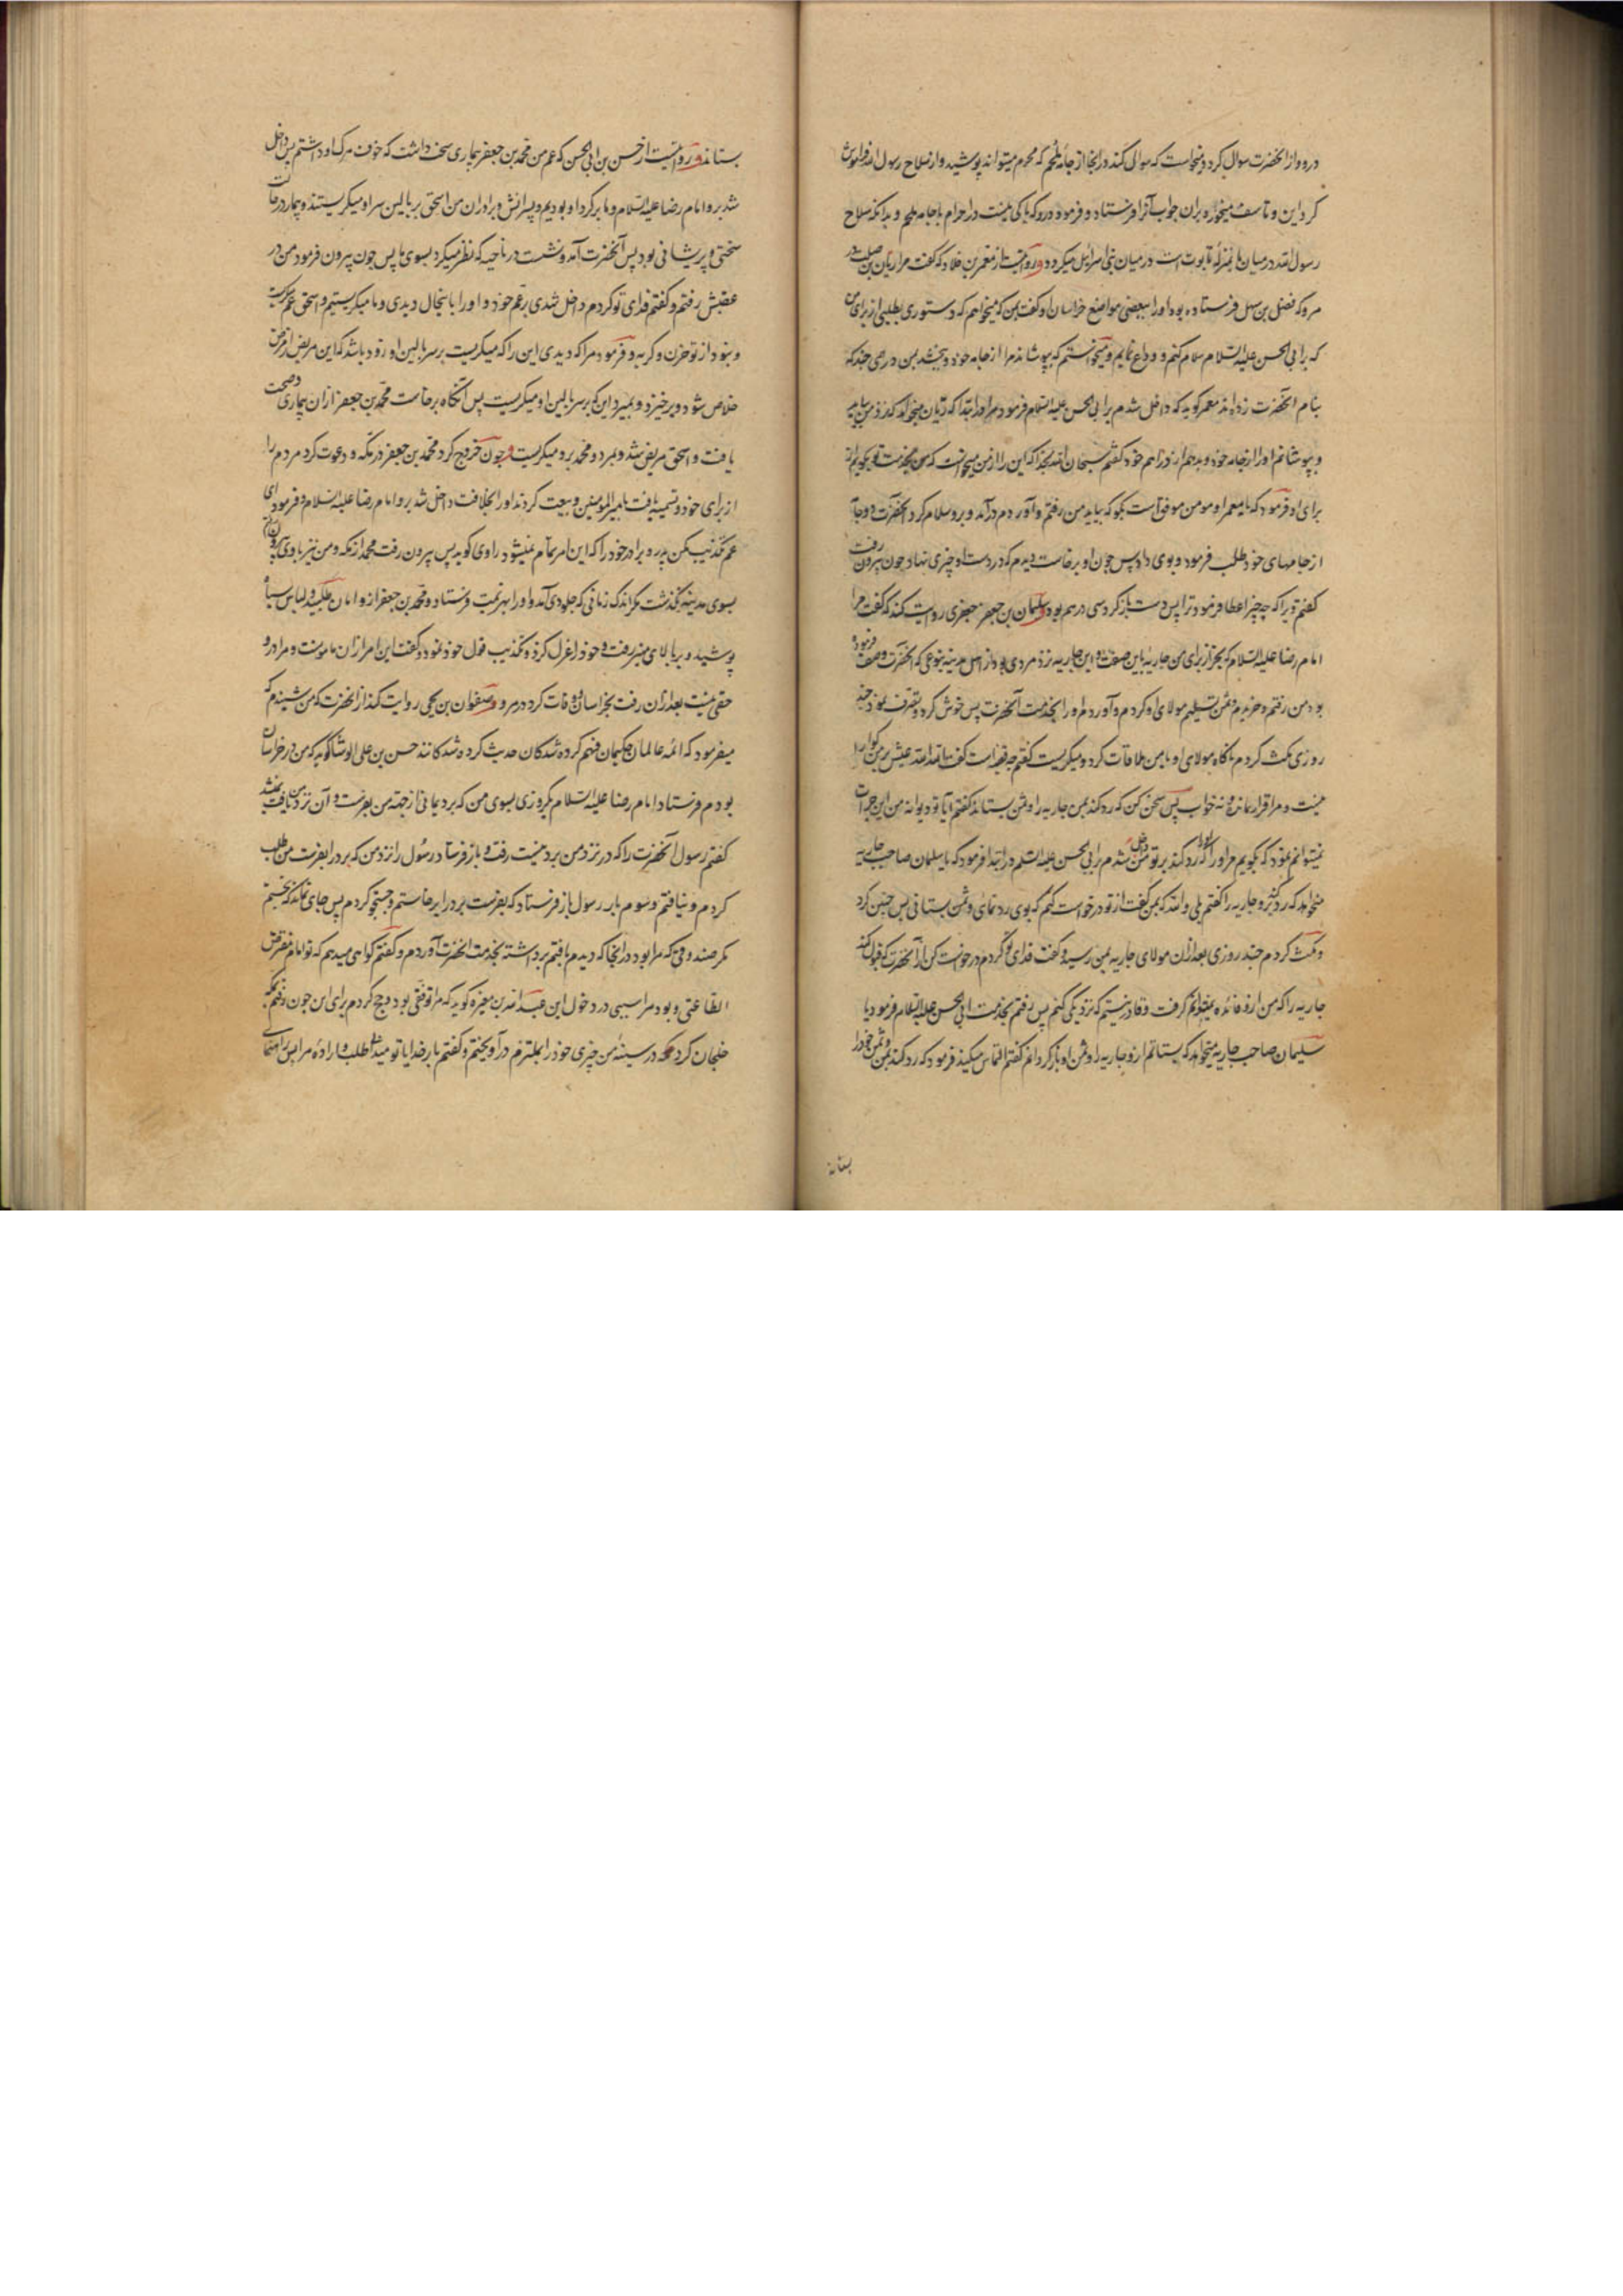 درو و از آنحضرت سوال کرد و میخواست که سوالی کند در آنجا از جامهٔ ملحم که محرم میتواند پوشید و از سلاح رسول الله فراموش
کرد این و تاسف میخورد بران جواب آنرا فرستاد و فرمود درو که باکی نیست در احرام با جامه ملحم و بدانکه سلاح
رسول الله در میان ما بمنزله تابوت است در میان بنی اسرائیل میگردد و روایتست از معمر بن خلاد که گفت مرا ریان بن صلت در
مرو که فضل بن سهل فرستاده بود او را ببعضی مواضع خراسان او گفت بمن که میخواهم که دستوری بطلبی از برای من
که بر ابی الحسن علیه السلام سلام کنم و وداع نمایم و میخواستم که بپوشاند مرا از جامه خود و ببخشد بمن درمی چند که
بنام آنحضرت زده‌اند معمر گوید که داخل شدم بر ابی الحسن علیه السلام فرمود مرا در ابتدا که ریان میخواهد که نزد من بیاید
و بپوشانم او را از جامه خود و بدهم از دراهم خود گفتم سبحان الله بخدا که این را از من میخواست که من بخدمت تو بگویم از
برای او فرمود که یا معمر او مومن موفق است بگو که بیاید من رفتم و آوردم درآمد و برو سلام کرد آنحضرت دو جامه
از جامهای خود طلب فرمود و بوی داد پس چون او برخاست دیدم که در دست او چیزی نهاد چون بیرون رفت
گفتم ویرا که چه چیز اعطا فرمود ترا پس دست باز کرد سی درهم بود و سلیمان بن جعفر جعفری روایت کند که گفت مرا
امام رضا علیه السلام که بخر از برای من جاریهٔ باین صفت و این جاریه نزد مردی بود از اهل مدینه بنوعی که آنحضرت وصف فرموده
بود من رفتم و خریدم و ثمن تسلیم مولای او کردم و آوردم او را بخدمت آنحضرت پس خوش کرد و تصرف نمود چند
روزی مکث کردم ناگاه مولای او با من ملاقات کرد و میگریست گفتم چه قضیه است گفت الله الله عیش بر من گوارا
نیست و مرا قرار نمانده و نه خواب پس سخن کن که رد کند بمن جاریه را و ثمن بستاند گفتم آیا تو دیوانهٔ من این جرات
نمیتوانم نمود که بگویم مر او را که او را رد کند بر تو من داخل شدم بر ابی الحسن علیه السلام در ابتدا فرمود که یا سلیمان صاحب جاریه
میخواهد که رد کنم برو جاریه را گفتم بلی والله که بمن گفت از تو درخواست کنم که بوی رد نمای و ثمن بستانی پس چنین کرد
و مکث کردم چند روزی بعد ازان مولای جاریه بمن رسید و گفت فدای تو گردم درخواست کن از آنحضرت که قبول کند
جاریه را که من ازو فائده نمیتوانم گرفت و قادر نیستم که نزدیکی کنم پس رفتم بخدمت ابی الحسن علیه السلام فرمود یا
سلیمان صاحب جاریه میخواهد که بستانم ازو جاریه را و ثمن او باز گردانم گفتم التماس میکند فرمود که رد کند بمن و ثمن خود را
بستاند
بستاند و روایتست از حسن بن ابی الحسن که عم من محمد بن جعفر بیماری سخت داشت که خوف مرگ او داشتم پس داخل
شد برو امام رضا علیه السلام و ما برگرد او بودیم و پسرانش و برادران من اسحق بر بالین سر او میگریستند و بیمار در غایت
سختی و پریشانی بود پس آنحضرت آمد و نشست در ناحیه که نظر میکرد بسوی ما پس چون بیرون فرمود من در
عقبش رفتم و گفتم فدای تو گردم داخل شدی بر عم خود و او را باینحال دیدی و ما میگریستیم و اسحق عم میگریست
و نبود از تو حزن و گریه و فرمود مرا که دیدی این را که میگریست بر سر بالین او زود باشد که این مریض از مرض
خلاص شود و برخیزد و بمیرد این که بر سر بالین او میگریست پس آنگاه برخاست محمد بن جعفر ازان بیماری و صحت
یافت و اسحق مریض شد و بمرد و محمد برو میگریست و چون خروج کرد محمد بن جعفر در مکه و دعوت کرد مردم را
از برای خود و تسمیه یافت بامیر المومنین و بیعت کردند او را بخلافت داخل شد برو امام رضا علیه السلام و فرمود ای
عم تکذیب مکن پدر و برادر خود را که این امر تمام نمیشود راوی گوید پس بیرون رفت محمد از مکه و من نیز با وی بیرون رفتم
بسوی مدینه نگذشت مگر اندک زمانی که جلودی آمد و او را بهزیمت فرستاد و محمد بن جعفر ازو امان طلبید و لباس سیاه
پوشید و بر بالای منبر رفت و خود را عزل کرد و تکذیب قول خود نمود و گفت این امر ازان مامونست و مرا درو
حقی نیست بعد ازان رفت بخراسان و وفات کرد در مرو و صفوان بن یحیی روایت کند از آنحضرت که من شنیدم که
میفرمود که ائمه عالمان حکیمان فهم کرده شدگان حدیث کرده شدگانند حسن بن علی الوشا گوید که من در خراسان
بودم فرستاد امام رضا علیه السلام یکروزی بسوی من که برد یمانی از جهة من بفرست و آن نزد من یافت نمیشد
گفتم رسول آنحضرت را که در نزد من برد نیست رفت و باز فرستاد رسول را نزد من که برد را بفرست من طلب
کردم و نیافتم و سوم بار رسول باز فرستاد که بفرست برد را برخاستم و جستجو کردم پس جای نماند که نجستم
مگر صندوقی که مرا بود در آنجا که دیدم یافتم برداشته بخدمت آنحضرت آوردم و گفتم گواهی میدهم که تو امام مفترض
الطاعتی و بود مرا سببی در دخول این عبد الله بن مغیره گوید که مرا توقفی بود و حج کردم برای این چون رفتم بمکه
خلجان کرد در سینهٔ من چیزی خود را بملتزم درآویختم و گفتم بار خدایا تو میدانی طلب و ارادهٔ مرا پس راهنمای